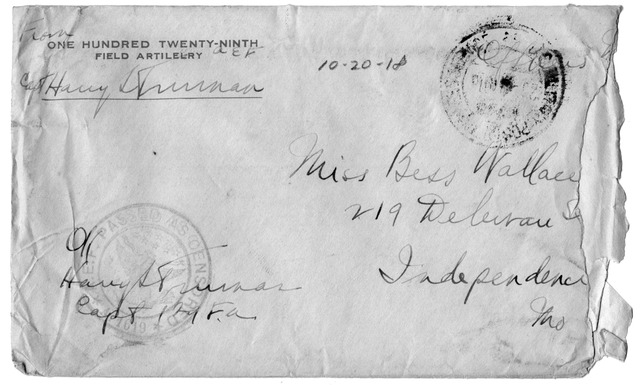 From
ONE HUNDRED TWENTY-NINTH
FIELD ARTILLERY
AEF
Capt Harry S Truman
10-20-18
Miss Bess Wallace
219 Delewan
Independence
Mo
OK
Harry S Truman
Capt 129 F.A.
PASSED AS CENSORED